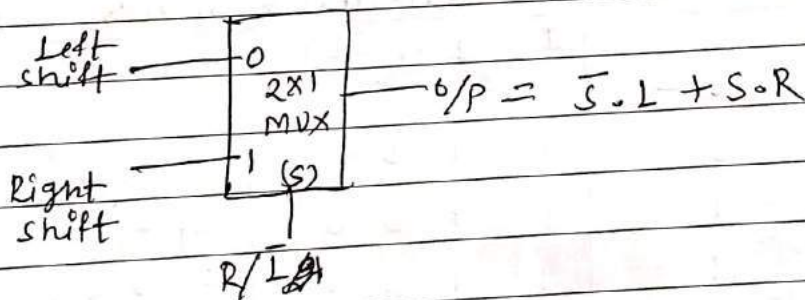 Left
shift
0
2x1
MUX
O/P = S̅.L + S.R
Right
shift
1
(S)
R/L̅